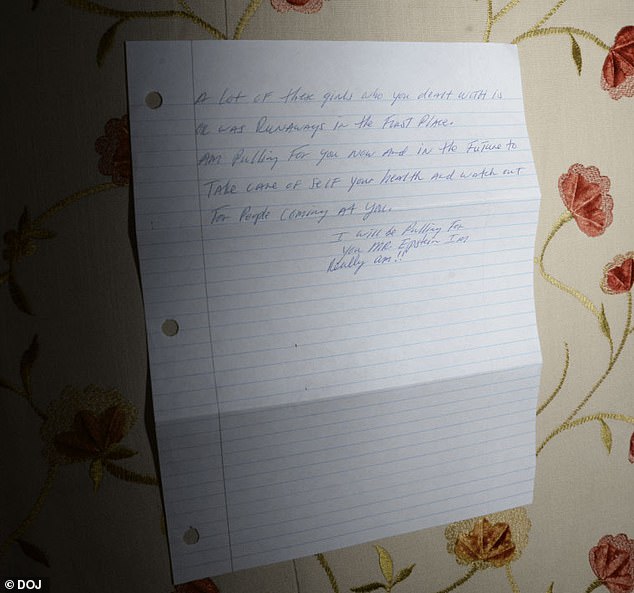 A Lot of these girls who you dealt with is
or was Runaways in the First Place.
Am Pulling For you Now and in the Future to
Take care of Self your health and watch out
For People Coming At You.
I will be Pulling For
you MR. Epstein I'm
Really am!!
© DOJ